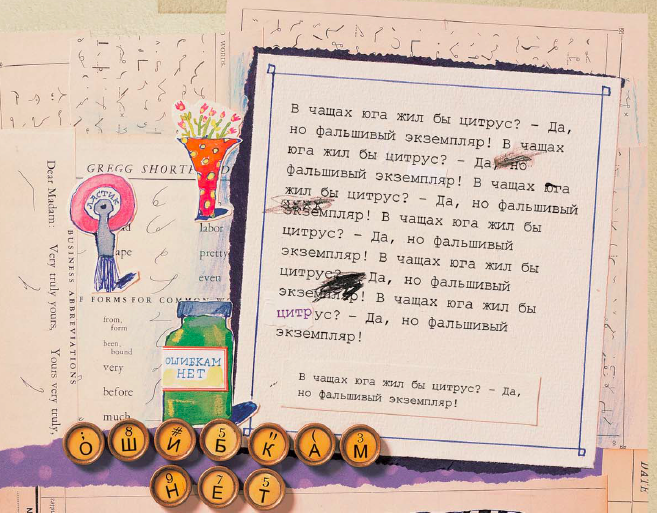 WORDS
GREGG SHORTH
Dear Madam: Very truly yours, Yours very truly,
BUSINESS ABBREVIATIONS
ЛАСТИК
labor
ape
pretty
even
F FORMS FOR COMMON W
from,
form
been,
bound
very
before
much
ОШИБКАМ
НЕТ
В чащах юга жил бы цитрус? – Да,
но фальшивый экземпляр! В чащах
юга жил бы цитрус? – Да, но
фальшивый экземпляр! В чащах юга
жил бы цитрус? – Да, но фальшивый
экземпляр! В чащах юга жил бы
цитрус? – Да, но фальшивый
экземпляр! В чащах юга жил бы
цитрус? – Да, но фальшивый
экземпляр! В чащах юга жил бы
цитрус? – Да, но фальшивый
экземпляр!
В чащах юга жил бы цитрус? – Да,
но фальшивый экземпляр!
: 8 # 5 " ( 3
О Ш И Б К А М
9 7 5
Н Е Т
DATE